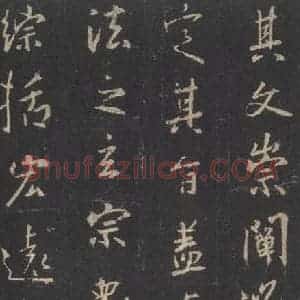 其文崇闡
定其旨蓋
法之玄宗眾
綜括宏遠
Shufaziliao.com